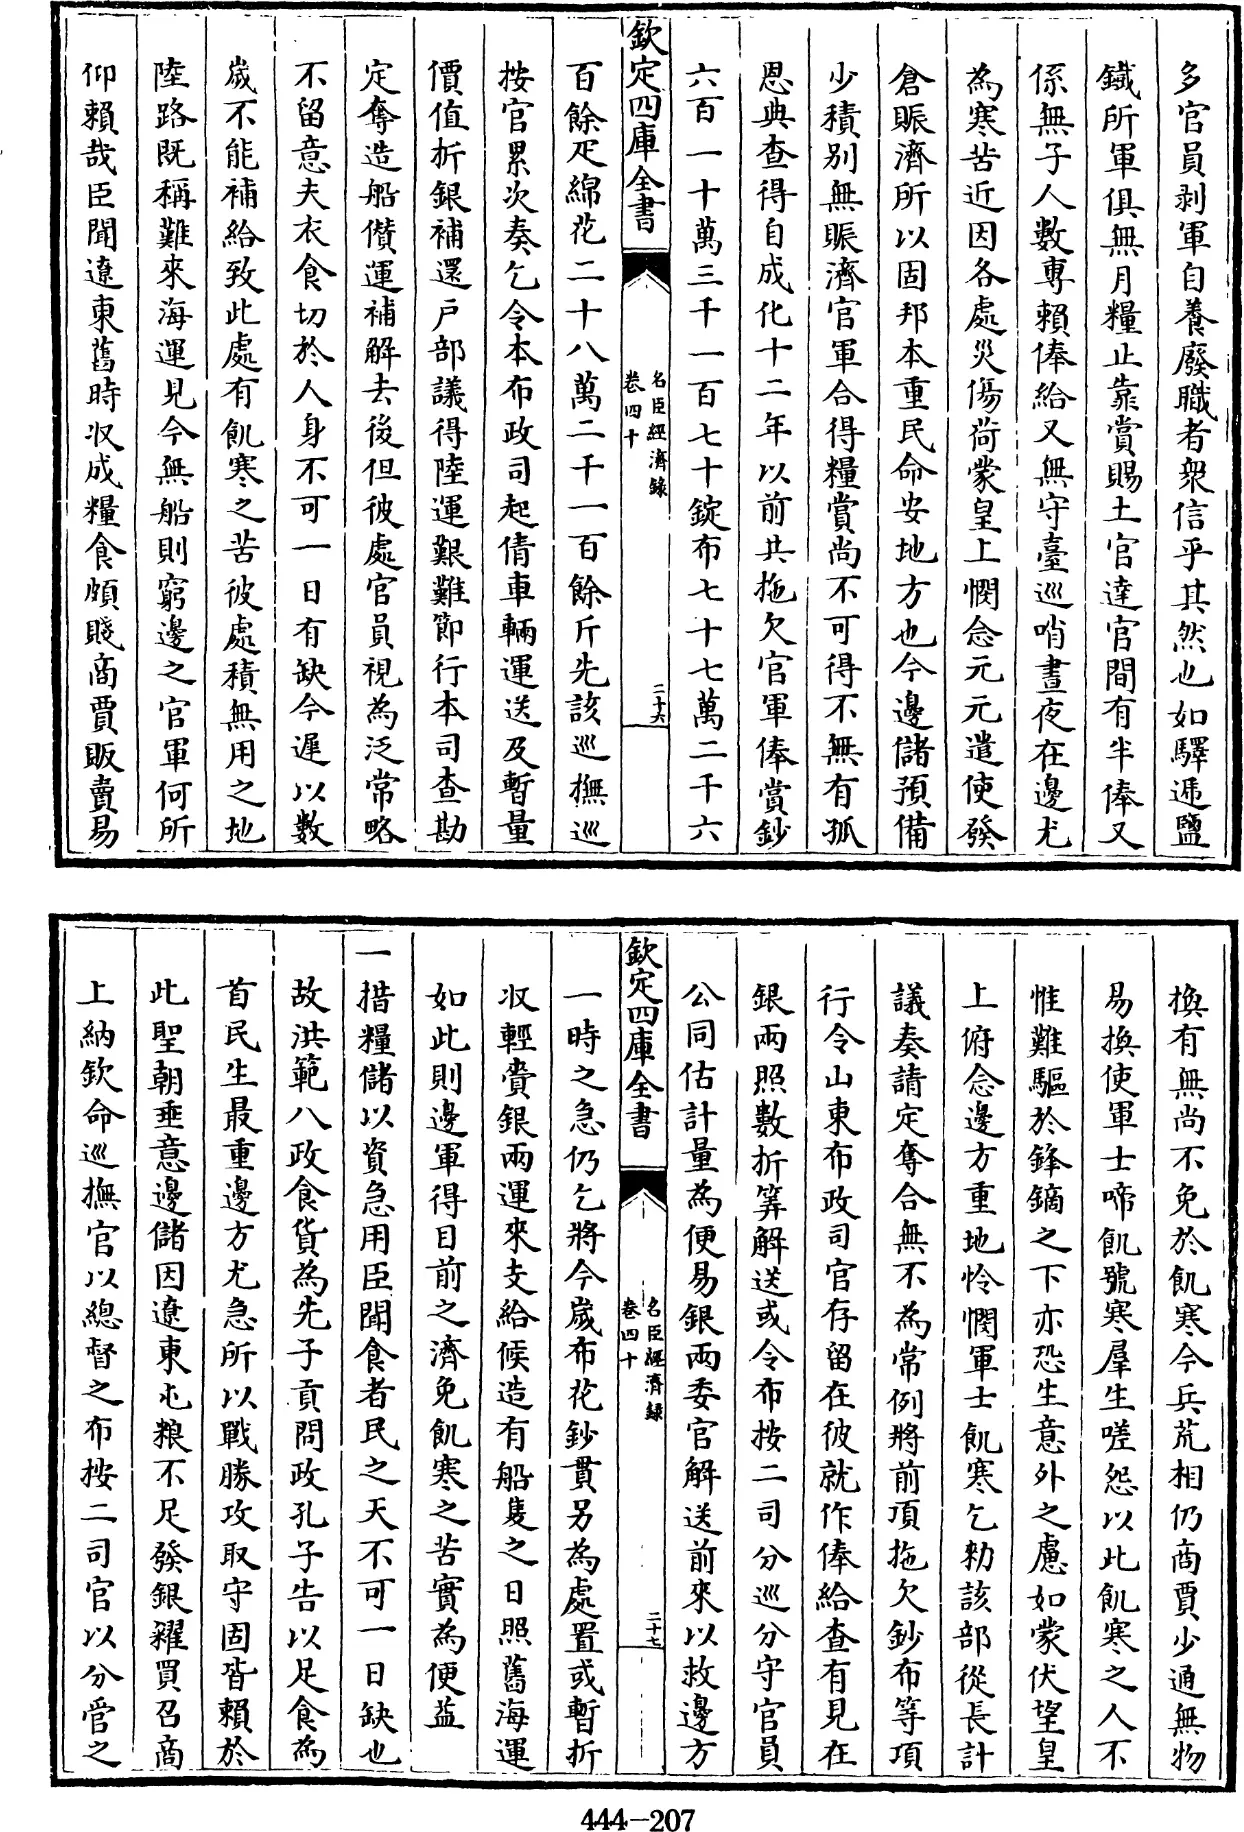 多官員剥軍自養廢職者衆信乎其然也如驛逓鹽
鐵所軍俱無月糧止靠賞賜土官達官間有半俸又
係無子人數專賴俸給又無守臺巡哨晝夜在邊尤
為寒苦近因各處災傷荷蒙皇上憫念元元遣使發
倉賑濟所以固邦本重民命安地方也今邊儲預備
少積别無賑濟官軍合得糧賞尚不可得不無有孤
恩典查得自成化十二年以前共拖欠官軍俸賞鈔
六百一十萬三千一百七十錠布七十七萬二千六
欽定四庫全書
名臣經濟錄
卷四十
二十六
百餘疋綿花二十八萬二千一百餘斤先該巡撫巡
按官累次奏乞令本布政司起倩車輛運送及暫量
價值折銀補還戶部議得陸運艱難節行本司查勘
定奪造船儹運補解去後但彼處官員視為泛常略
不留意夫衣食切於人身不可一日有缺今遲以數
嵗不能補給致此處有飢寒之苦彼處積無用之地
陸路既稱難來海運見今無船則窮邊之官軍何所
仰賴哉臣聞遼東舊時收成糧食頗賤商賈販賣易
換有無尚不免於飢寒今兵荒相仍商賈少通無物
易換使軍士啼飢號寒羣生嗟怨以此飢寒之人不
惟難驅於鋒鏑之下亦恐生意外之慮如蒙伏望皇
上俯念邊方重地怜憫軍士飢寒乞勅該部從長計
議奏請定奪合無不為常例將前項拖欠鈔布等項
行令山東布政司官存留在彼就作俸給查有見在
銀兩照數折筭解送或令布按二司分巡分守官員
公同估計量為便易銀兩委官解送前來以救邊方
欽定四庫全書
名臣經濟錄
卷四十
二十七
一時之急仍乞將今嵗布花鈔貫另為處置或暫折
收輕賫銀兩運來支給候造有船隻之日照舊海運
如此則邊軍得目前之濟免飢寒之苦實為便益
一措糧儲以資急用臣聞食者民之天不可一日缺也
故洪範八政食貨為先子貢問政孔子告以足食為
首民生最重邊方尤急所以戰勝攻取守固皆賴於
此聖朝垂意邊儲因遼東屯粮不足發銀糴買召商
上納欽命巡撫官以總督之布按二司官以分管之
444-207